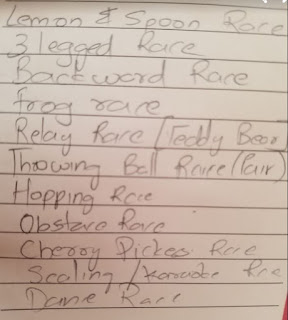 Lemon & Spoon Race
3 legged Race
Backword Race
frog race
Relay Race / Teddy Bear
Throwing Ball Raire (Pair)
Hopping Race
Obstare Race
Cherry Picker Race
Scaling / Race
Dame Race